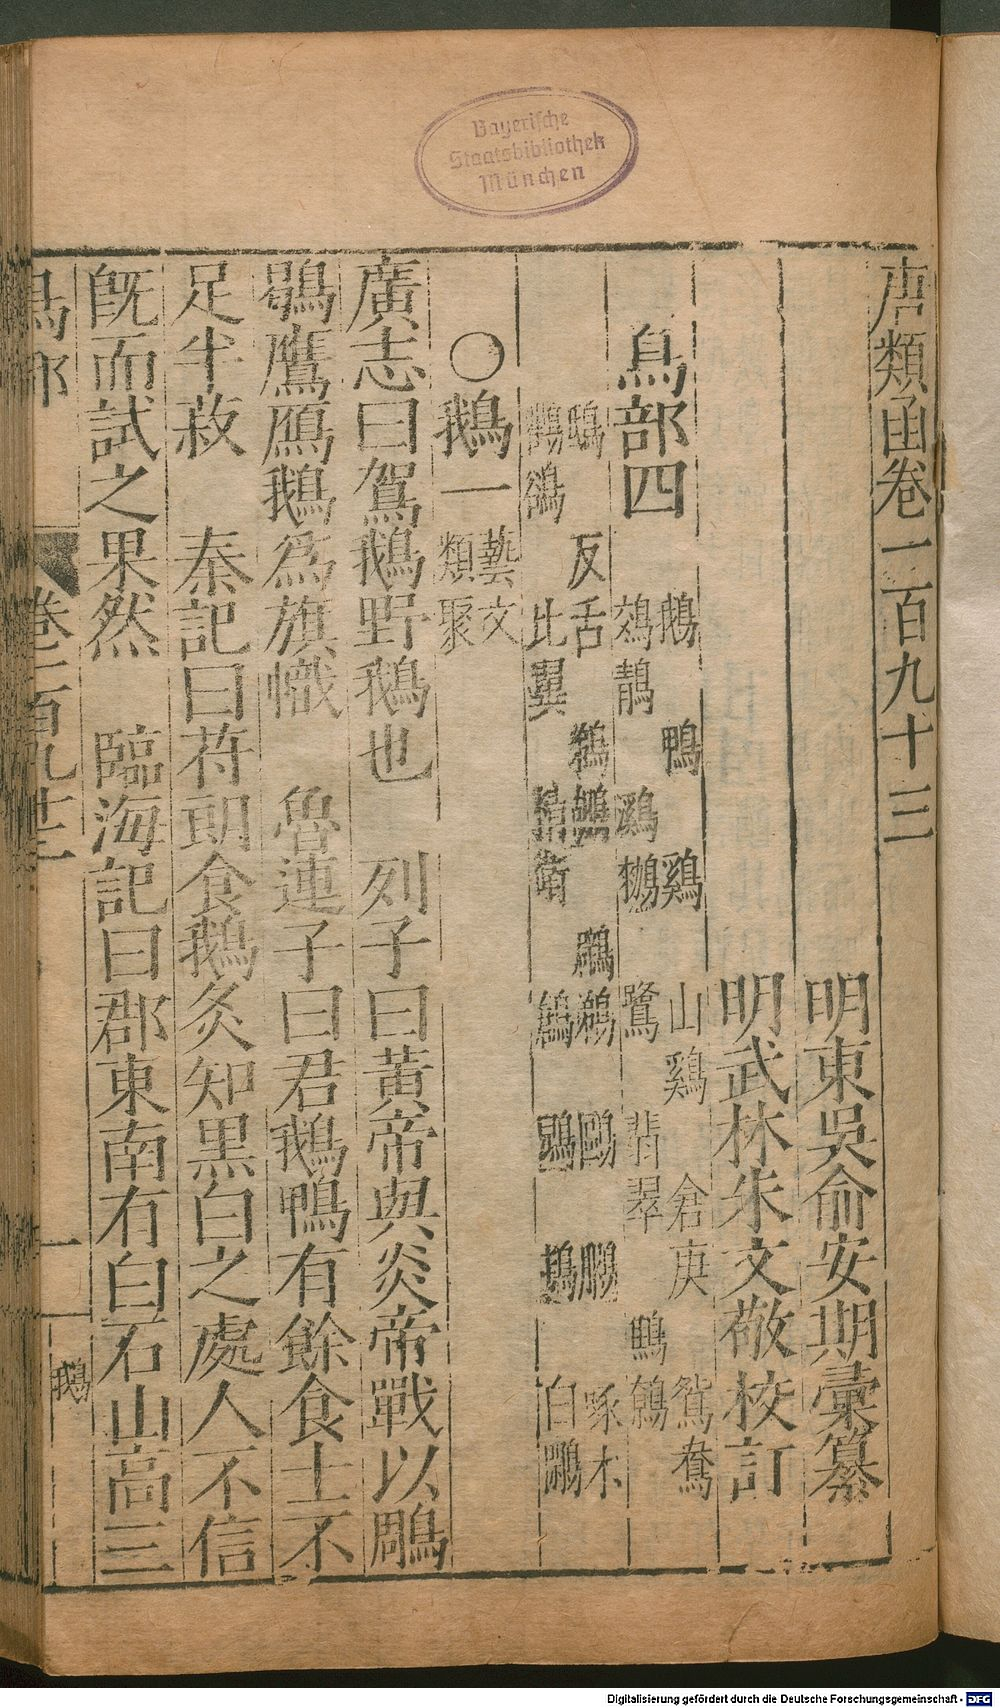 Bayerische
Staatsbibliothek
München
唐類函卷一百九十三
明東吳俞安期彙纂
明武林朱文敬校訂
鳥部四
鵝 鴨 鷄 山鷄 倉庚 鴛鴦
鵁鶄 鸂鶒 鷺 翡翠
反舌 鷗 啄木
鸜鵒 比翼 精衛 白鷴
○鵝一 藝文類聚
廣志曰駕鵝野鵝也 列子曰黃帝與炎帝戰以鵰
鶡鷹鴈鵝爲旗幟 魯連子曰君鵝鴨有餘食士不
足半菽 秦記曰苻朗食鵝炙知黑白之處人不信
旣而試之果然 臨海記曰郡東南有白石山高三
鳥部 卷一百九十三 一 鵝
Digitalisierung gefördert durch die Deutsche Forschungsgemeinschaft - DFG